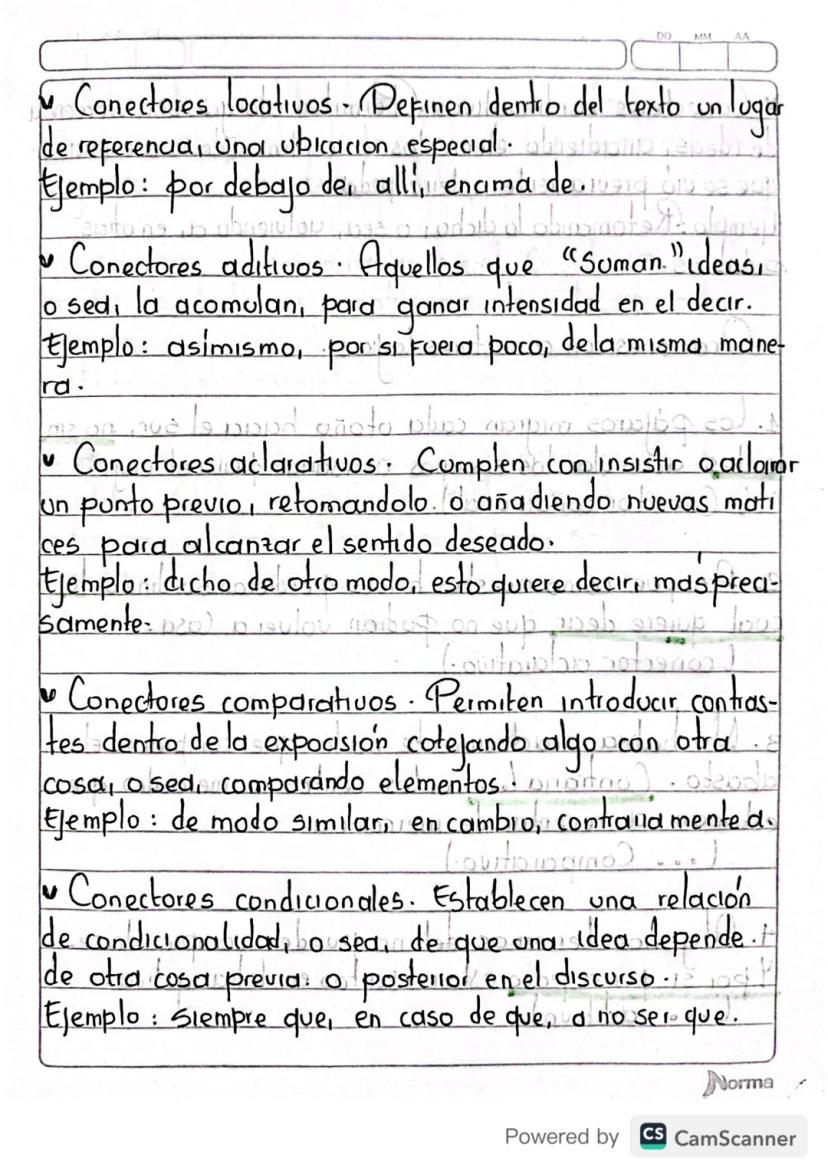 DD MM AA
✓ Conectores locativos. Definen dentro del texto un lugar
de referencia, una ubicacion especial.
Ejemplo: por debajo de, alli, encima de.
✓ Conectores aditivos. Aquellos que "Suman" ideas,
o sea, la acomulan, para ganar intensidad en el decir.
Ejemplo: asimismo, por si fuera poco, de la misma mane-
ra.
✓ Conectores aclarativos. Cumplen con insistir o aclarar
un punto previo, retomandolo o añadiendo nuevas mati
ces para alcanzar el sentido deseado.
Ejemplo: dicho de otro modo, esto quiere decir, más preci-
samente.
✓ Conectores comparativos. Permiten introducir contras-
tes dentro de la exposición cotejando algo con otra
cosa, o sea, comparando elementos.
Ejemplo: de modo similar, en cambio, contrariamente a.
✓ Conectores condicionales. Establecen una relación
de condicionalidad, o sea, de que una idea depende
de otra cosa previa o posterior en el discurso.
Ejemplo: Siempre que, en caso de que, a no ser que.
Norma
Powered by CS CamScanner